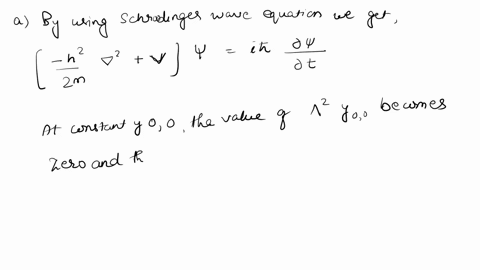 a) By using Schrodinger wave equation we get,
[ -ħ²/2m ∇² + V ] Ψ = iħ ∂Ψ/∂t
At constant y 0,0, the value of Λ² y₀,₀ becomes
zero and th